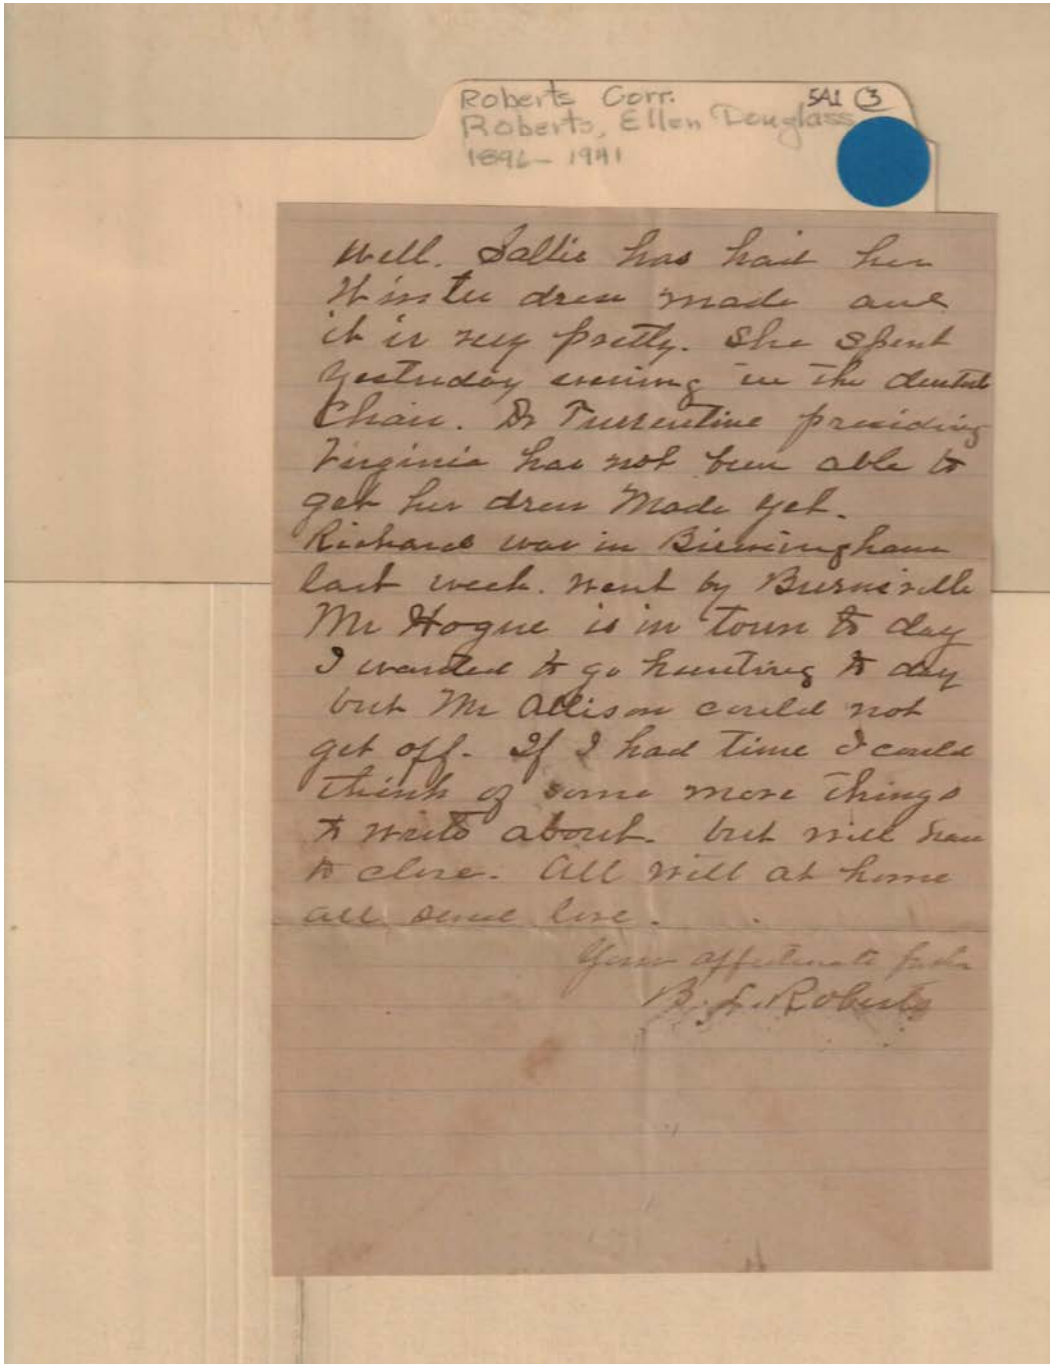 Roberts Corr. 5A1 (3)
Roberts, Ellen Douglass
1896-1941
Well. Sallie has had her
Winter dress made and
it is very pretty. She spent
yesterday evening in the dental
Chair. Dr Turrentine presiding
Virginia has not been able to
get her dress Made yet.
Richard was in Birmingham
last week. went by Burnsville
Mr Hogue is in town to day
I wanted to go hunting to day
but Mr Allison could not
get off. If I had time I could
think of some more things
to write about. but will have
to close. All well at home
all send love.
Your affectionate father
B. S. Roberts